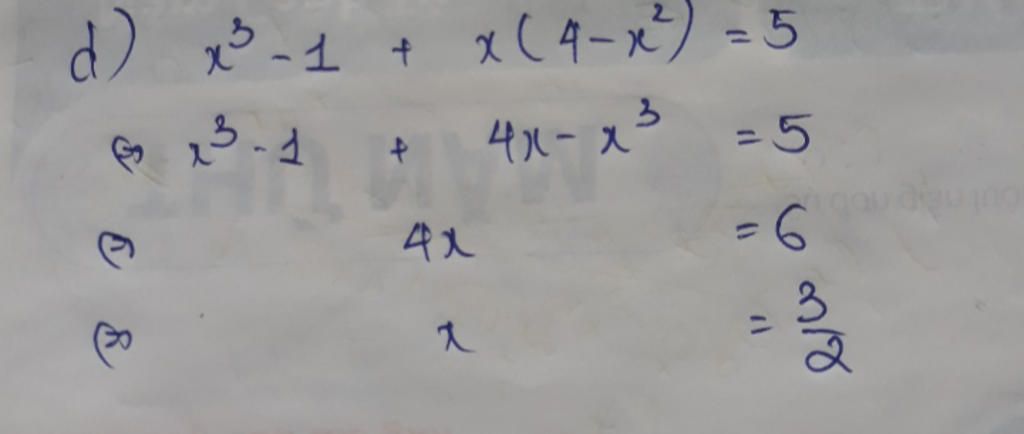 d) x³ - 1 + x(4 - x²) = 5
⇔ x³ - 1 + 4x - x³ = 5
⇔ 4x = 6
⇔ x = 3/2